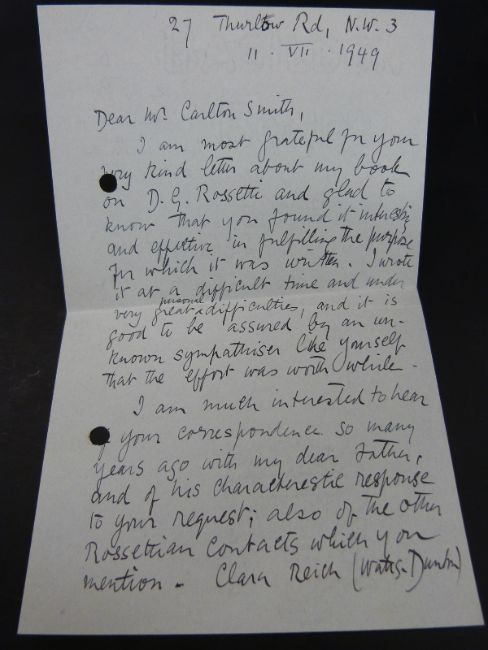 27 Thurlow Rd, N.W. 3
11 . VII . 1949
Dear Mr. Carlton Smith,
I am most grateful for your
very kind letter about my book
on D. G. Rossetti and glad to
know that you found it interesting
and effective in fulfilling the purpose
for which it was written. I wrote
it at a difficult time and under
very great personal difficulties, and it is
good to be assured by an un-
known sympathiser like yourself
that the effort was worth while.
I am much interested to hear
of your correspondence so many
years ago with my dear father,
and of his characteristic response
to your request; also of the other
Rossettian contacts which you
mention - Clara Reich (Watts-Dunton)